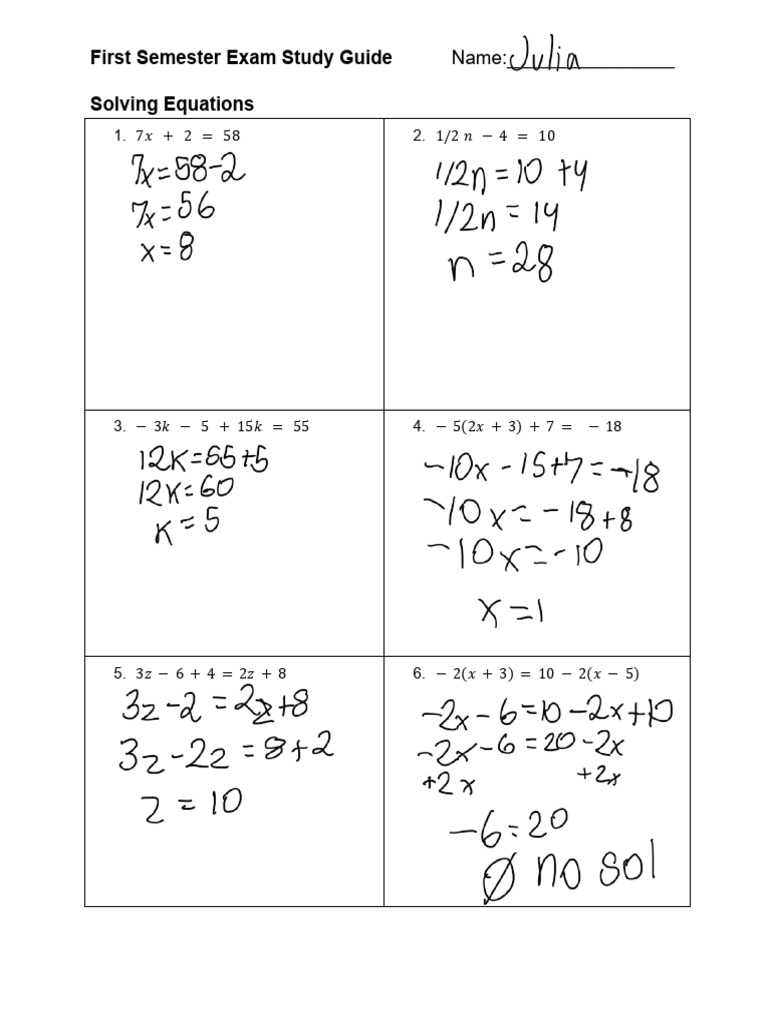 First Semester Exam Study Guide Name: Julia
Solving Equations
1. 7x + 2 = 58
7x = 58 - 2
7x = 56
x = 8
2. 1/2 n - 4 = 10
1/2n = 10 + 4
1/2n = 14
n = 28
3. - 3k - 5 + 15k = 55
12k = 55 + 5
12k = 60
k = 5
4. - 5(2x + 3) + 7 = - 18
-10x - 15 + 7 = -18
-10x = -18 + 8
-10x = -10
x = 1
5. 3z - 6 + 4 = 2z + 8
3z - 2 = 2z + 8
3z - 2z = 8 + 2
z = 10
6. - 2(x + 3) = 10 - 2(x - 5)
-2x - 6 = 10 - 2x + 10
-2x - 6 = 20 - 2x
+2x +2x
-6 = 20
Ø no sol